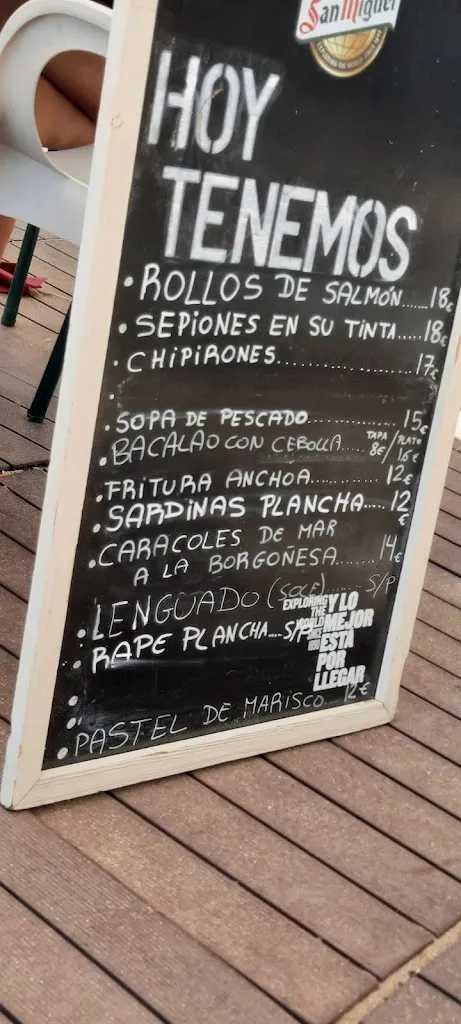 San Miguel
EXPLORING THE WORLD SINCE 1890
HOY
TENEMOS
• ROLLOS DE SALMÓN......18€
• SEPIONES EN SU TINTA.....18€
• CHIPIRONES...............17€
•
• SOPA DE PESCADO.............15€
• BACALAO CON CEBOLLA TAPA 8€/PLATO 16€
• FRITURA ANCHOA...........12€
• SARDINAS PLANCHA....12€
• CARACOLES DE MAR
A LA BORGOÑESA........14€
• LENGUADO (SOLE)........S/P
• RAPE PLANCHA....S/P
EXPLORING
THE
WORLD
SINCE
1890
Y LO
MEJOR
ESTÁ
POR
LLEGAR
•
•
• PASTEL DE MARISCO...12€